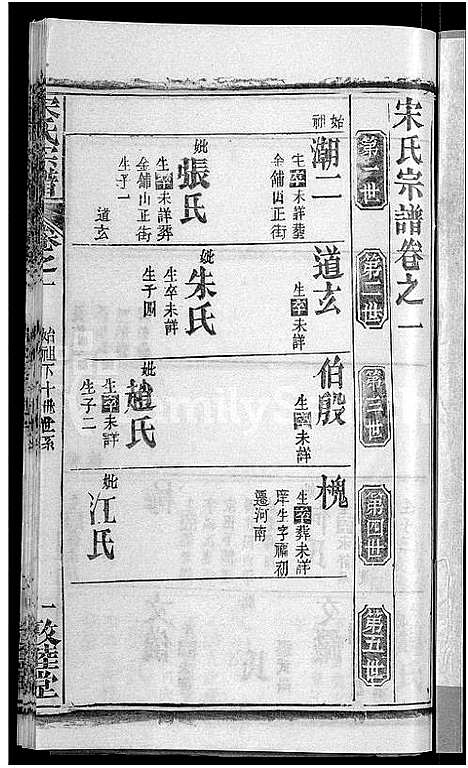 宋氏宗譜卷之一
第一世
第二世
第三世
第四世
第五世
始祖
潮二
生卒未詳葬
金鋪山正街
妣張氏
生卒未詳葬
金鋪山正街
生子一
道玄
道玄
生卒未詳
妣朱氏
生卒未詳
生子四
伯殷
生卒未詳
妣趙氏
生卒未詳
生子二
槐
生卒葬未詳
庠生字福初
遷河南
妣江氏
宋氏宗譜
卷之一
始祖下十世世系
一
敦睦堂